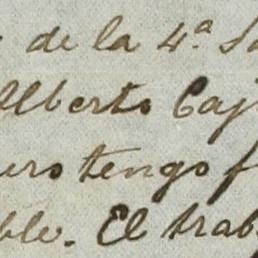 de la 4.ª
Alberto Caj
uro tengo f
ble. El trab